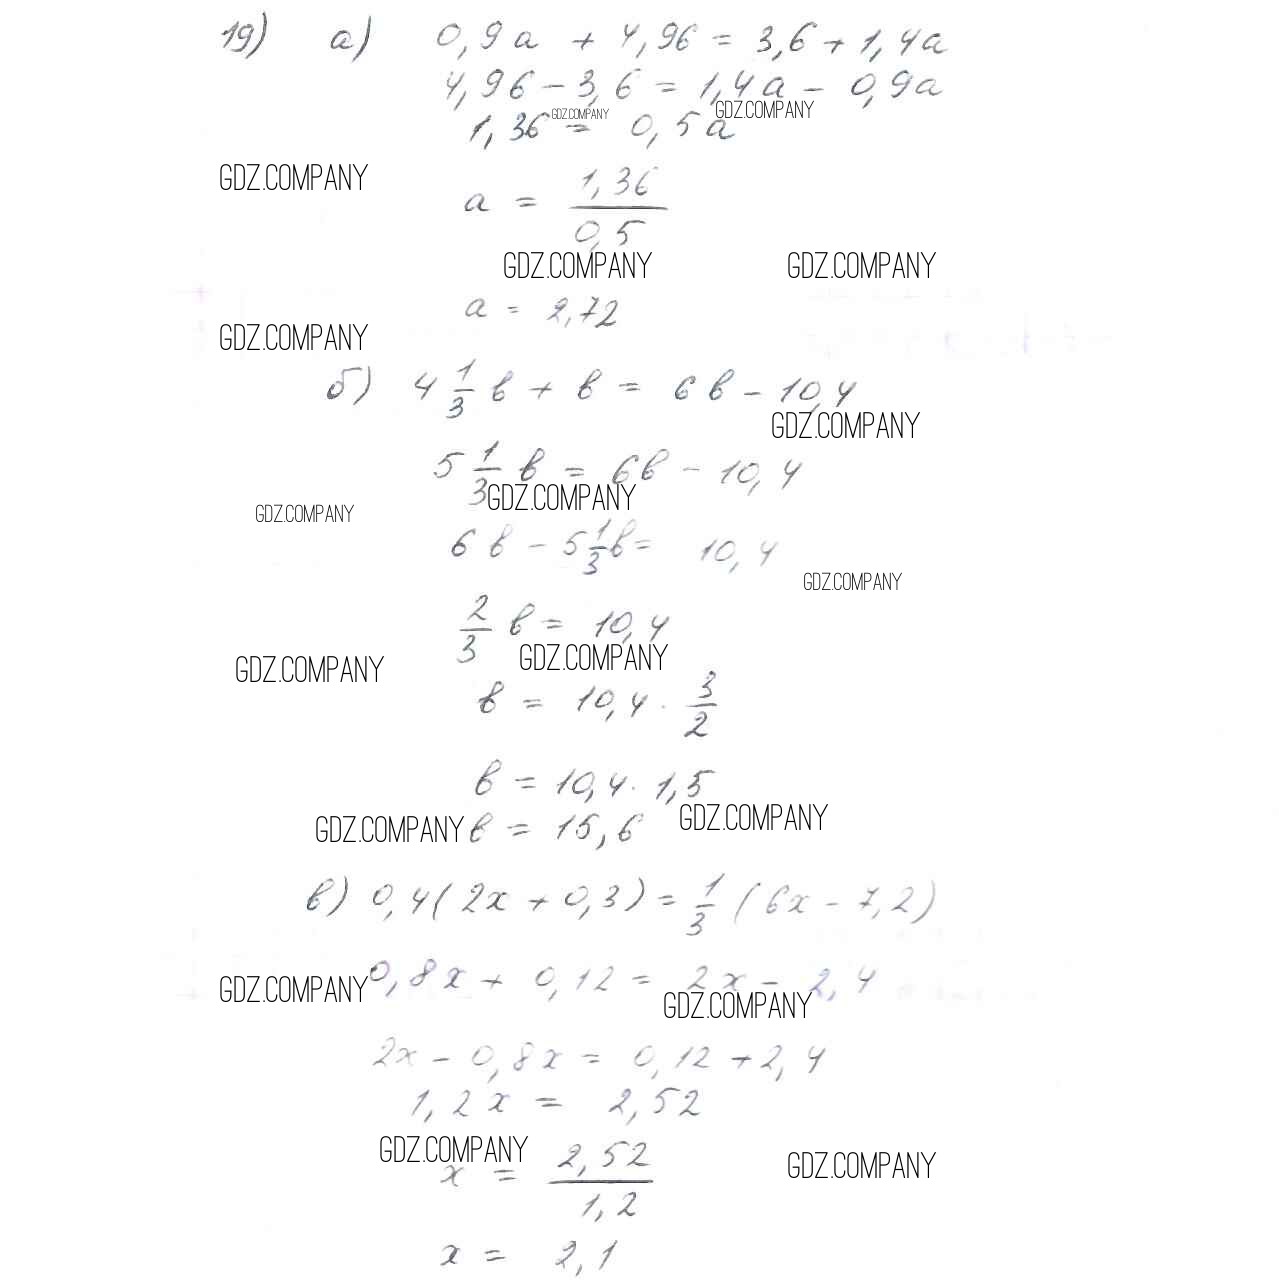 19) а) 0,9a + 4,96 = 3,6 + 1,4a
4,96 - 3,6 = 1,4a - 0,9a
GDZ.COMPANY GDZ.COMPANY
1,36 = 0,5a
GDZ.COMPANY
a = 1,36/0,5
GDZ.COMPANY GDZ.COMPANY
a = 2,72
GDZ.COMPANY
б) 4 1/3 в + в = 6в - 10,4
GDZ.COMPANY
5 1/3 в = 6в - 10,4
GDZ.COMPANY
GDZ.COMPANY
6в - 5 1/3 в = 10,4
GDZ.COMPANY
2/3 в = 10,4
GDZ.COMPANY GDZ.COMPANY
в = 10,4 · 3/2
в = 10,4 · 1,5
GDZ.COMPANY в = 15,6 GDZ.COMPANY
в) 0,4(2x + 0,3) = 1/3 (6x - 7,2)
GDZ.COMPANY 0,8x + 0,12 = 2x - 2,4
GDZ.COMPANY
2x - 0,8x = 0,12 + 2,4
1,2x = 2,52
GDZ.COMPANY GDZ.COMPANY
x = 2,52/1,2
x = 2,1